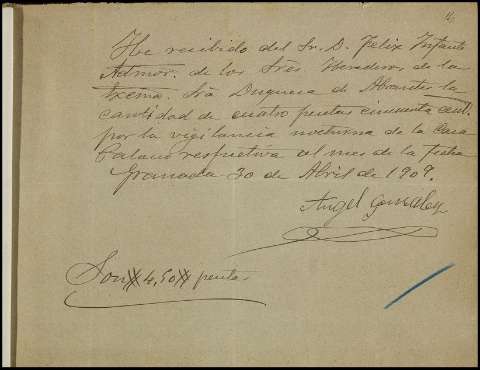 He recibido del Sr. D. Felix Infante
Admor. de los Sres. Herederos de la
Exema. Sra Duquesa de Abrantes la
cantidad de cuatro pesetas cincuenta cent.
por la vigilancia nocturna de la Casa
Palacio respectiva al mes de la fecha
Granada 30 de Abril de 1909.
Angel Gonzalez
Son 4,50 pesetas